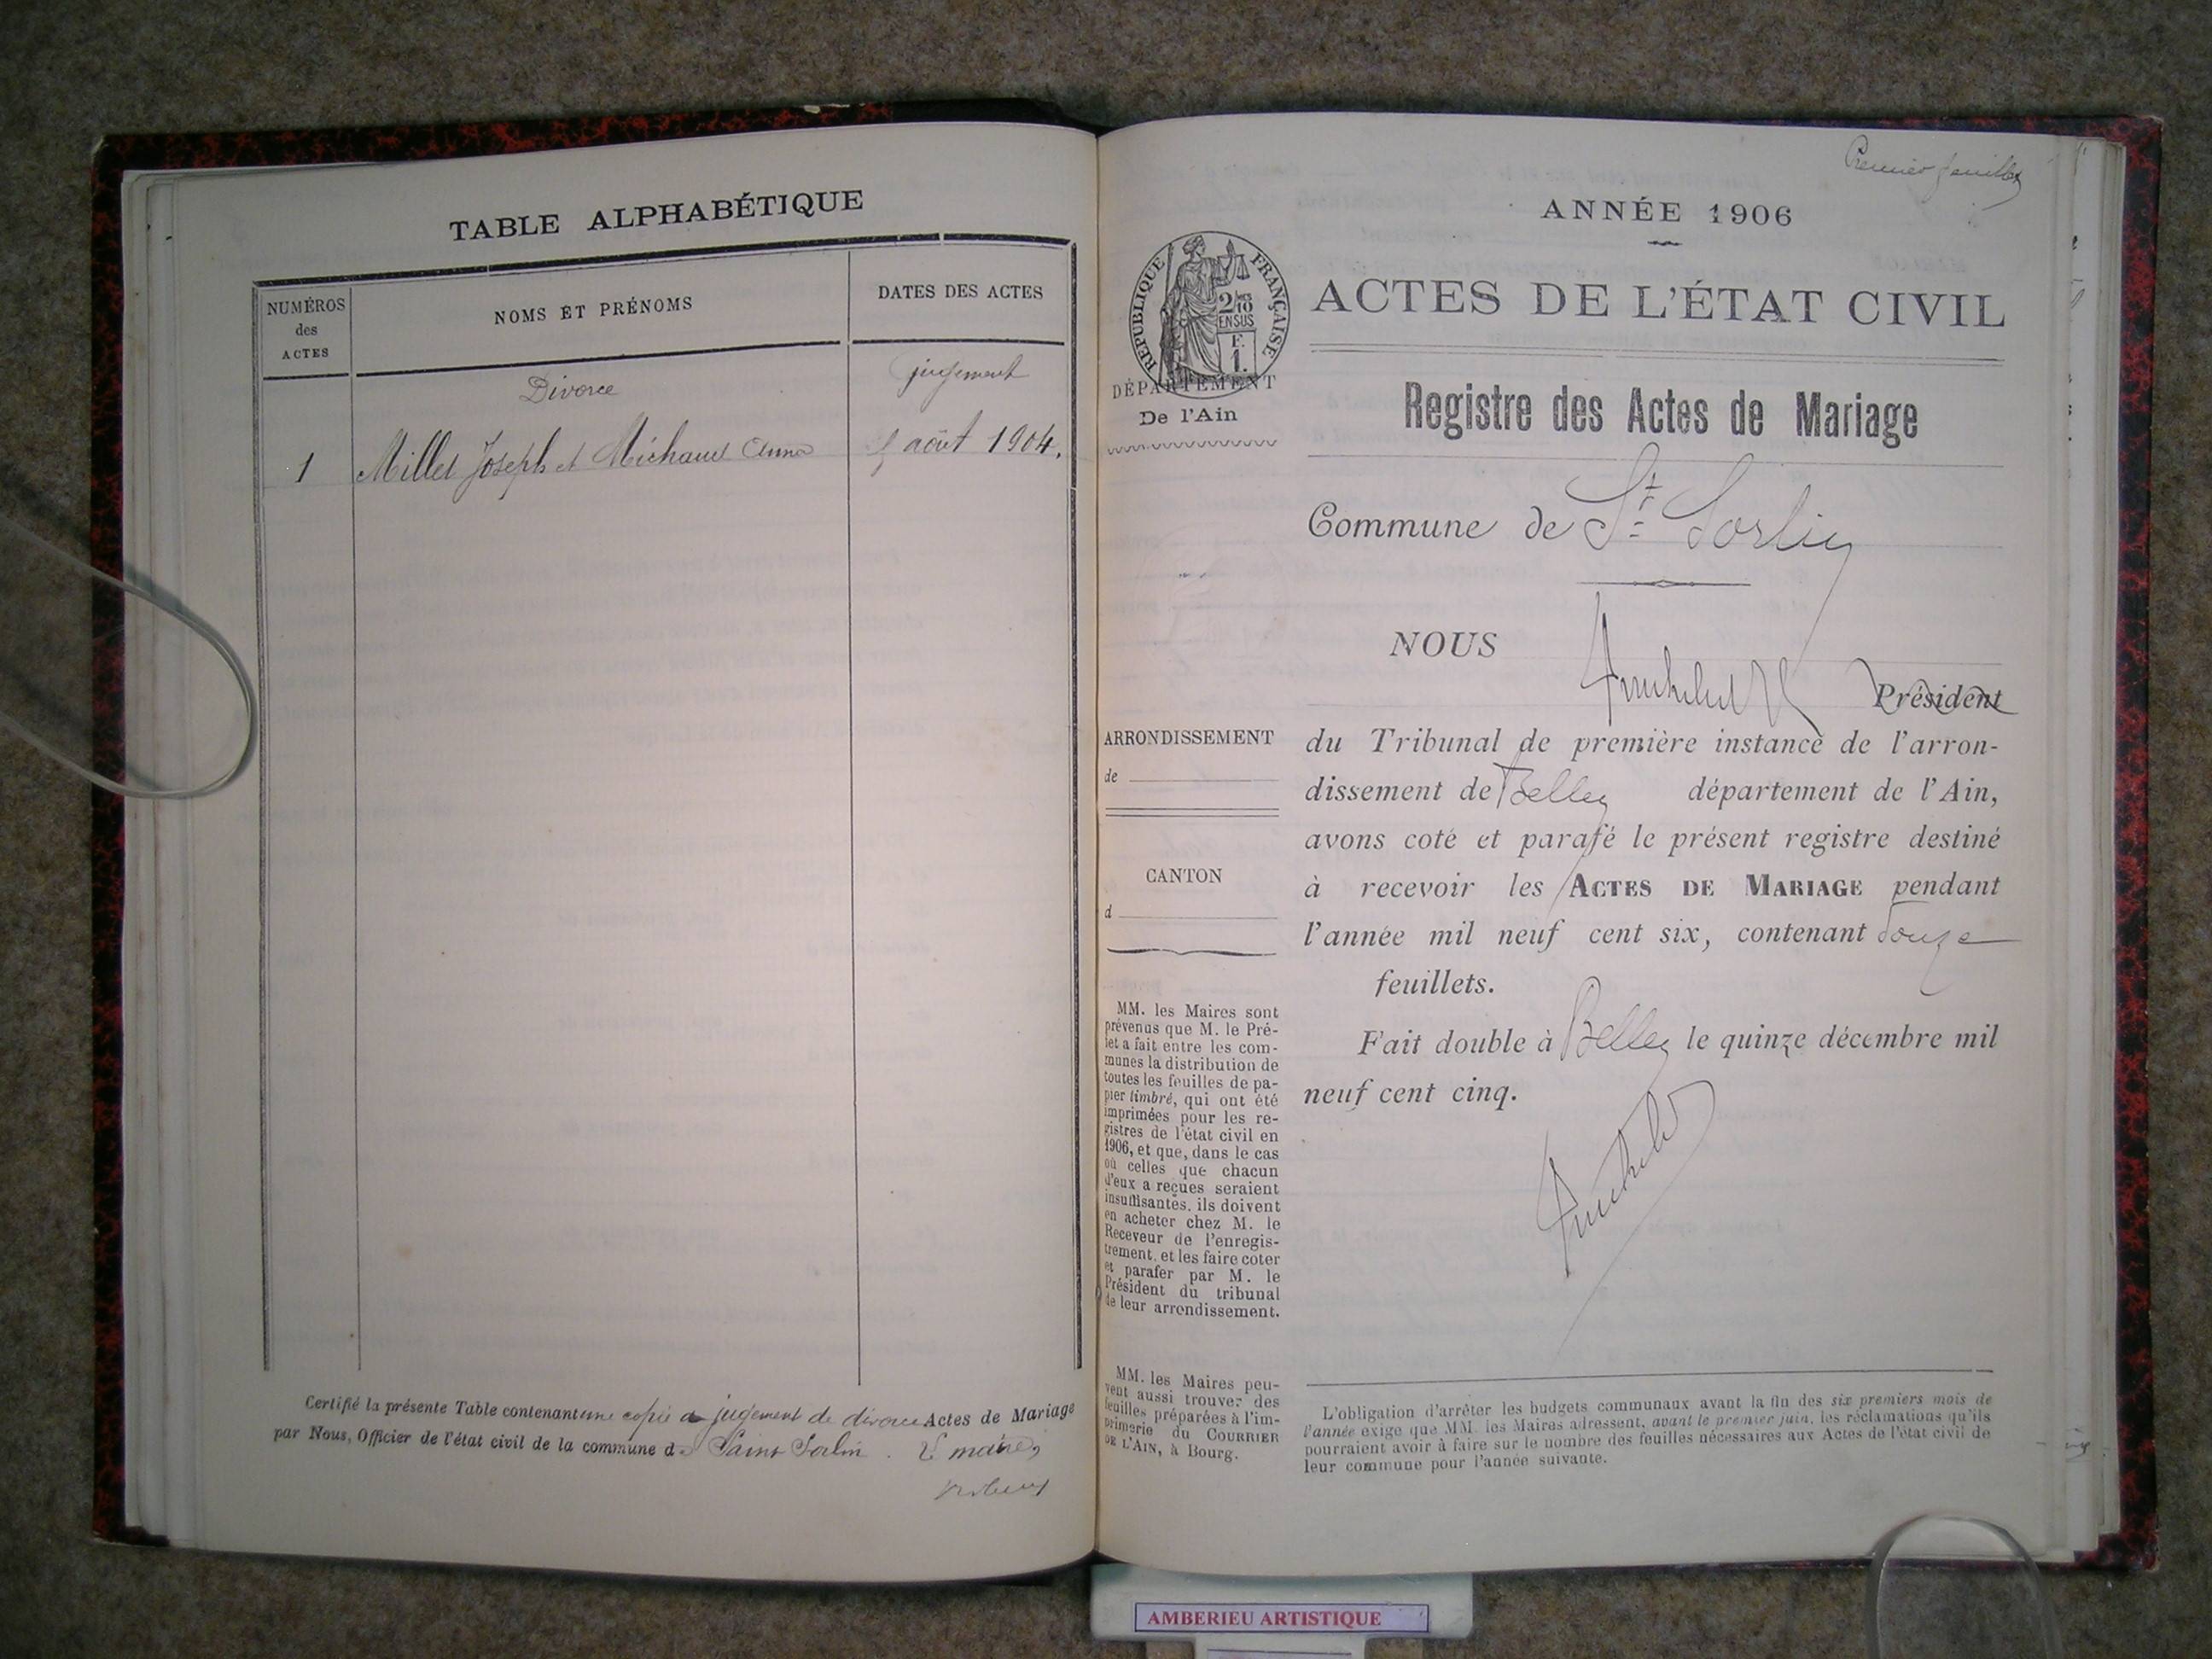 TABLE ALPHABÉTIQUE
NUMÉROS
des
ACTES
NOMS ET PRÉNOMS
DATES DES ACTES
Divorce
jugement
1 Millet Joseph et Michaud Anna août 1904.
Certifié la présente Table contenant une copie de jugement de divorce Actes de Mariage
par Nous, Officier de l'état civil de la commune de Saint Sorlin. Le maire,
Premier feuillet
ANNÉE 1906
RÉPUBLIQUE FRANÇAISE
2/10
EN SUS
F.
1.
ACTES DE L'ÉTAT CIVIL
DÉPARTEMENT
De l'Ain
Registre des Actes de Mariage
Commune de St Sorlin
NOUS
Président
ARRONDISSEMENT
de
CANTON
d
du Tribunal de première instance de l'arron-
dissement de Belley département de l'Ain,
avons coté et parafé le présent registre destiné
à recevoir les ACTES DE MARIAGE pendant
l'année mil neuf cent six, contenant douze
feuillets.
Fait double à Belley le quinze décembre mil
neuf cent cinq.
MM. les Maires sont
prévenus que M. le Pré-
fet a fait entre les com-
munes la distribution de
toutes les feuilles de pa-
pier timbré, qui ont été
imprimées pour les re-
gistres de l'état civil en
1906, et que, dans le cas
où celles que chacun
d'eux a reçues seraient
insuffisantes, ils doivent
en acheter chez M. le
Receveur de l'enregis-
trement, et les faire coter
et parafer par M. le
Président du tribunal
de leur arrondissement.
MM. les Maires peu-
vent aussi trouver des
feuilles préparées à l'im-
primerie du COURRIER
DE L'AIN, à Bourg.
L'obligation d'arrêter les budgets communaux avant la fin des six premiers mois de
l'année exige que MM. les Maires adressent, avant le premier juin, les réclamations qu'ils
pourraient avoir à faire sur le nombre des feuilles nécessaires aux Actes de l'état civil de
leur commune pour l'année suivante.
AMBERIEU ARTISTIQUE